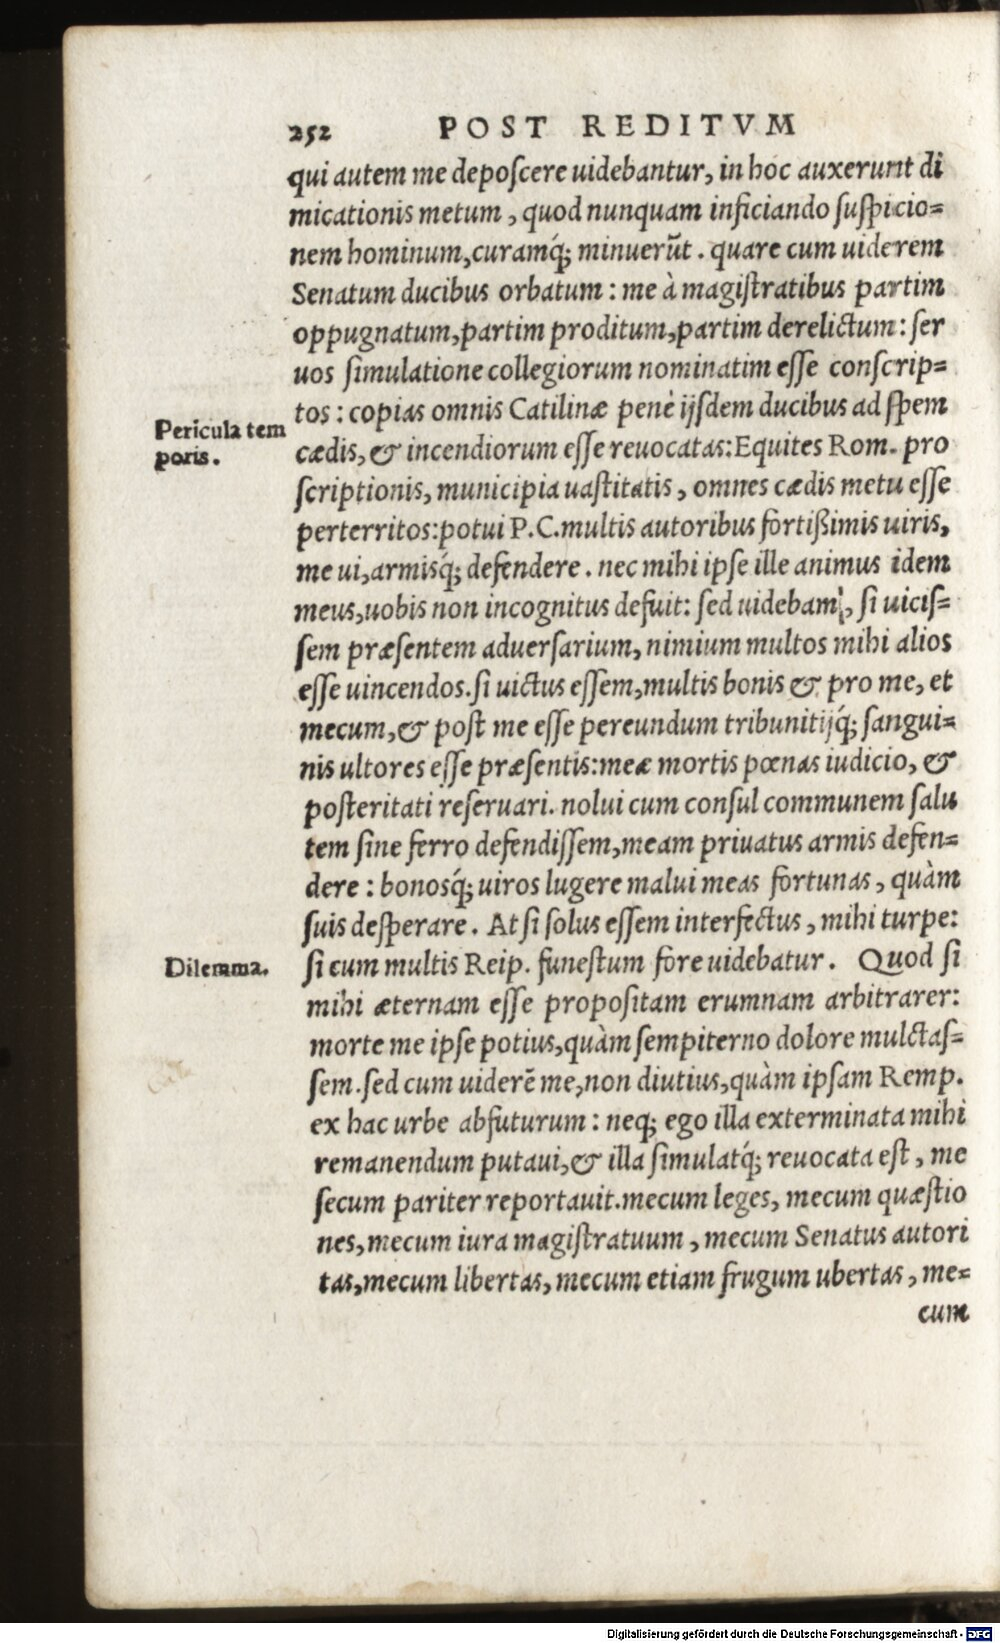 252 POST REDITVM
qui autem me depoſcere uidebantur, in hoc auxerunt di
micationis metum, quod nunquam inficiando ſuſpicio=
nem hominum, curamq́; minuerũt. quare cum uiderem
Senatum ducibus orbatum: me à magiſtratibus partim
oppugnatum, partim proditum, partim derelictum: ſer
uos ſimulatione collegiorum nominatim eſſe conſcrip=
tos: copias omnis Catilinæ penè ijſdem ducibus ad ſpem
Pericula tem
poris.
cædis, & incendiorum eſſe reuocatas: Equites Rom. pro
ſcriptionis, municipia uaſtitatis, omnes cædis metu eſſe
perterritos: potui P.C. multis autoribus fortißimis uiris,
me ui, armisq́; defendere. nec mihi ipſe ille animus idem
meus, uobis non incognitus defuit: ſed uidebam, ſi uiciſ=
ſem præſentem aduerſarium, nimium multos mihi alios
eſſe uincendos. ſi uictus eſſem, multis bonis & pro me, et
mecum, & poſt me eſſe pereundum tribunitijq́; ſangui=
nis ultores eſſe præſentis: meæ mortis pœnas iudicio, &
poſteritati reſeruari. nolui cum conſul communem ſalu
tem ſine ferro defendiſſem, meam priuatus armis defen=
dere: bonosq́; uiros lugere malui meas fortunas, quàm
ſuis deſperare. At ſi ſolus eſſem interfectus, mihi turpe:
Dilemma.
ſi cum multis Reip. funeſtum fore uidebatur. Quod ſi
mihi æternam eſſe propoſitam erumnam arbitrarer:
morte me ipſe potius, quàm ſempiterno dolore mulctaſ=
ſem. ſed cum uiderẽ me, non diutius, quàm ipſam Remp.
ex hac urbe abfuturum: neq; ego illa exterminata mihi
remanendum putaui, & illa ſimulatq́; reuocata eſt, me
ſecum pariter reportauit. mecum leges, mecum quæſtio
nes, mecum iura magiſtratuum, mecum Senatus autori
tas, mecum libertas, mecum etiam frugum ubertas, me=
cum
Digitalisierung gefördert durch die Deutsche Forschungsgemeinschaft - DFG